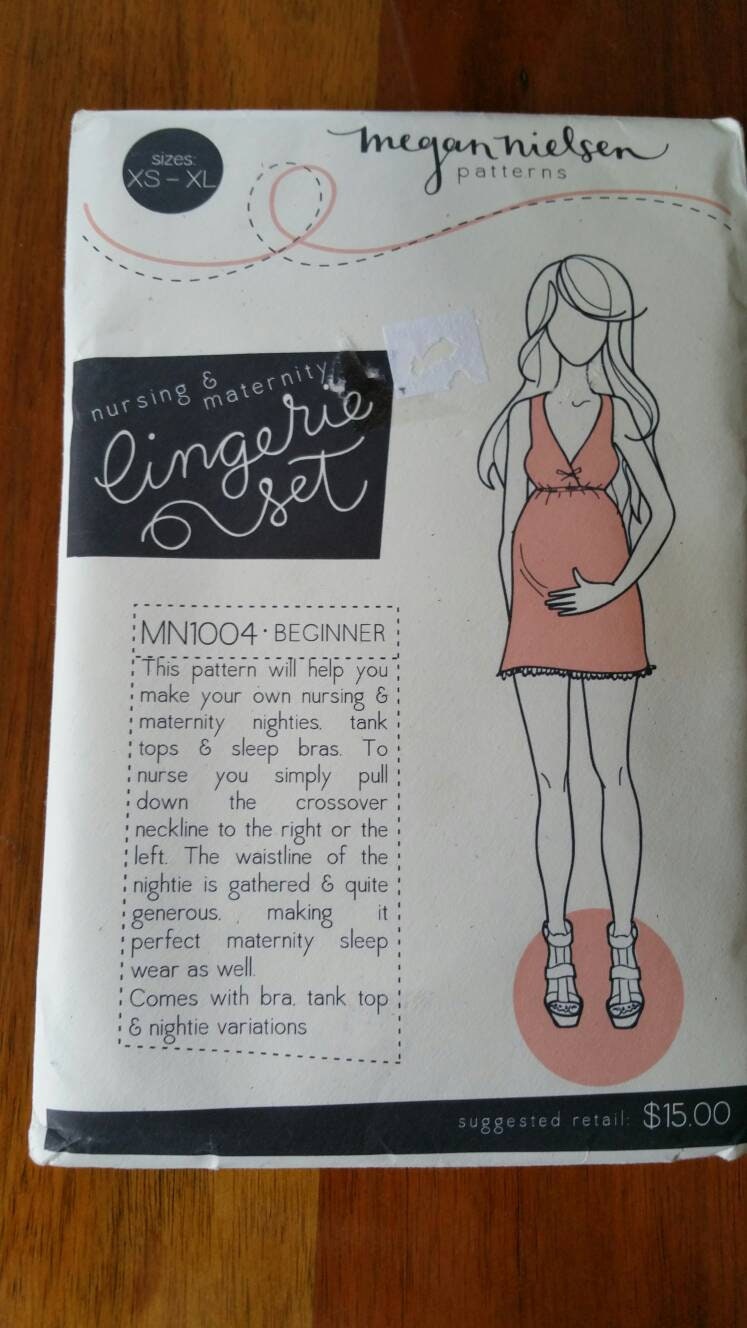 sizes:
XS - XL
megan nielsen
patterns
nursing & maternity
lingerie
set
MN1004 · BEGINNER
This pattern will help you
make your own nursing &
maternity nighties, tank
tops & sleep bras. To
nurse you simply pull
down the crossover
neckline to the right or the
left. The waistline of the
nightie is gathered & quite
generous, making it
perfect maternity sleep
wear as well.
Comes with bra, tank top
& nightie variations
suggested retail: $15.00